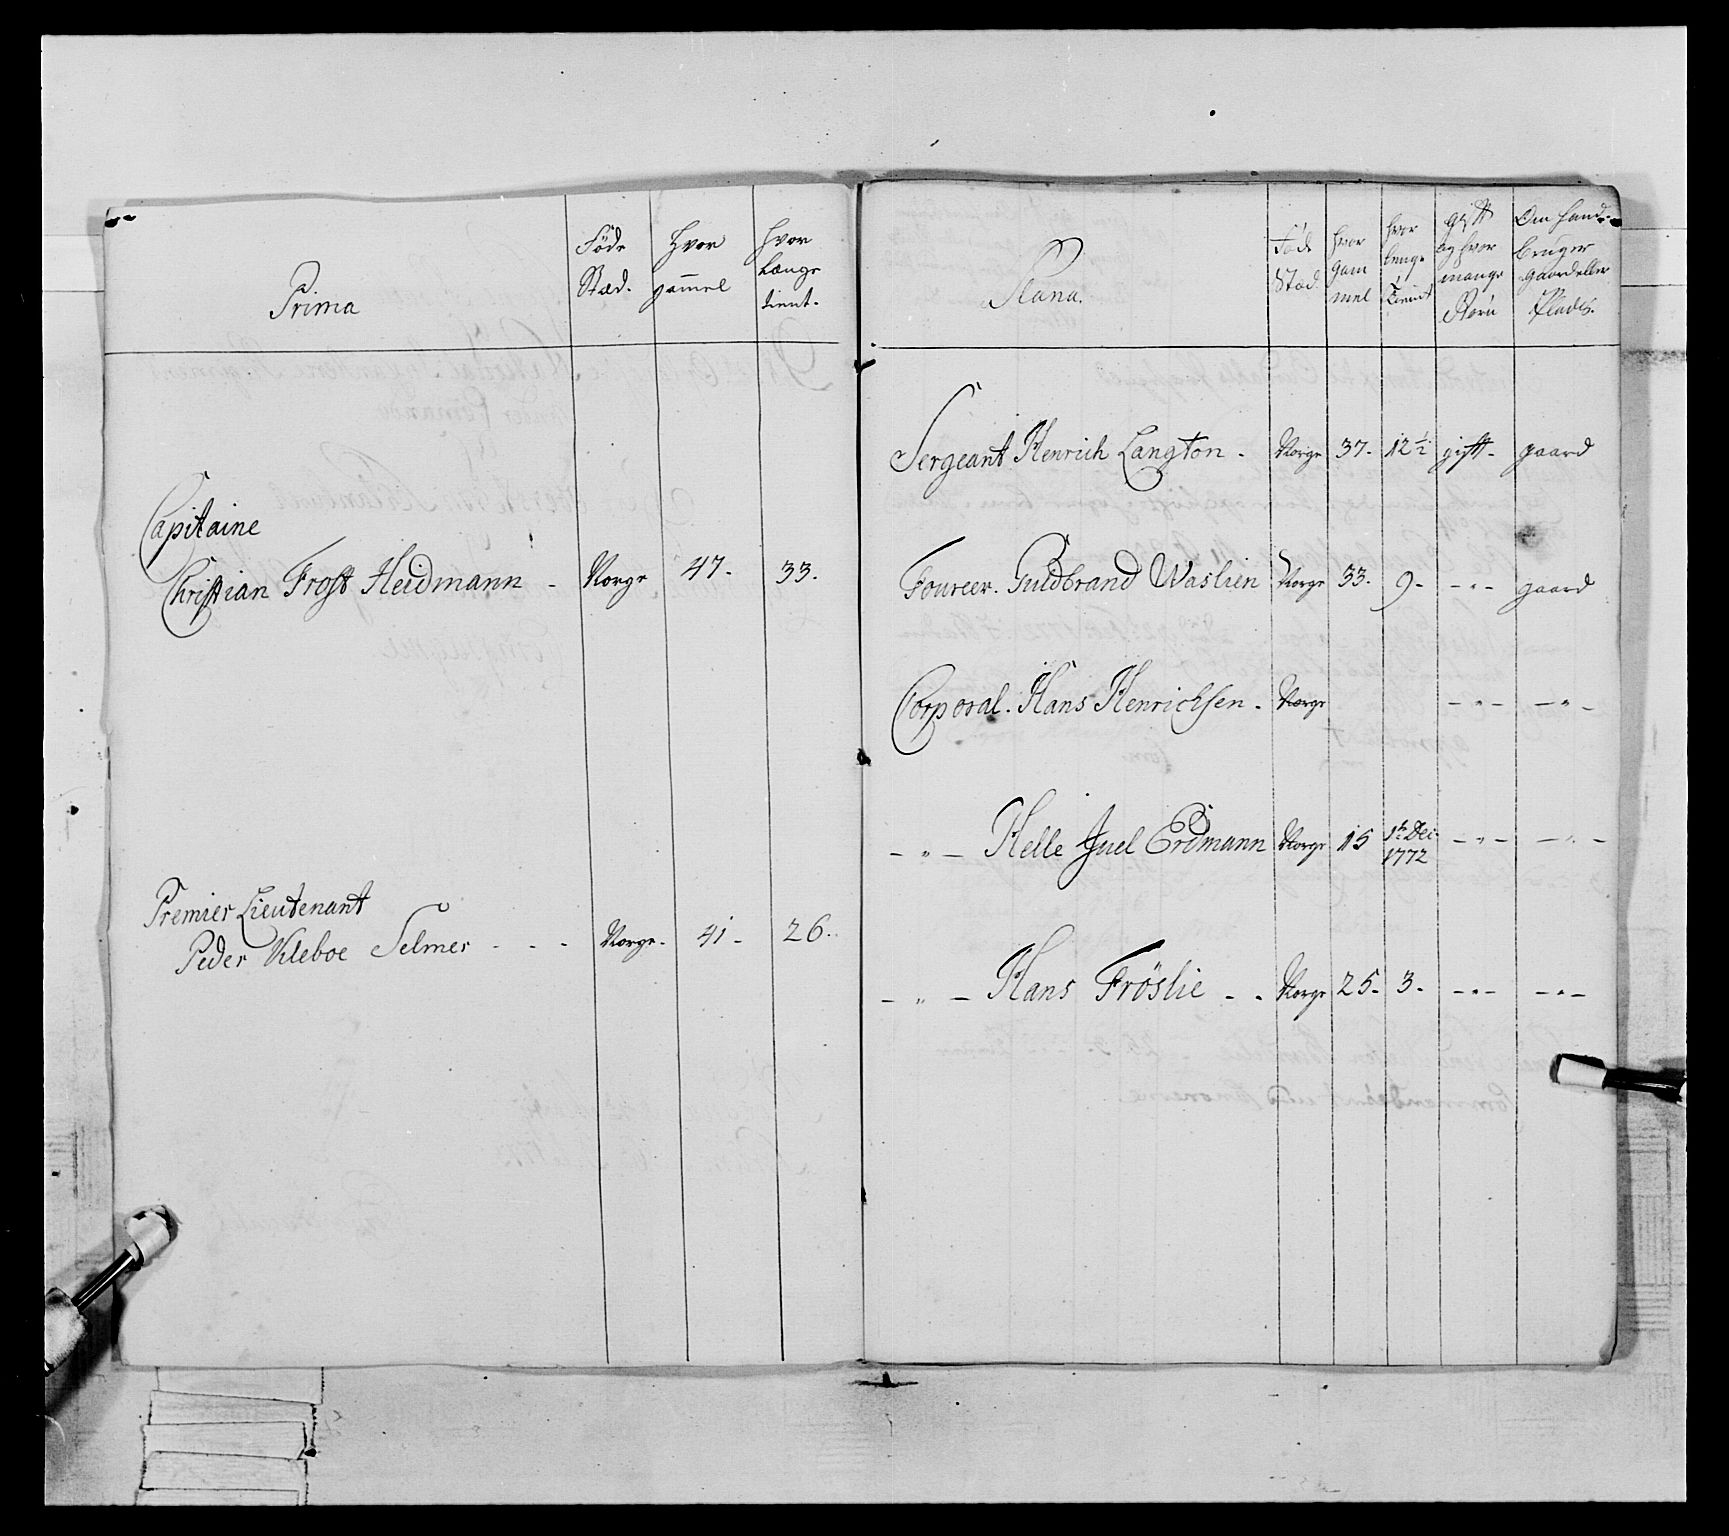 Prima
Føde Stæd.
Hvor gammel
Hvor Længe tient.
Capitaine
Christian Frost Heidmann - Norge 47. 33.
Premier Lieutenant
Peder Kleboe Selmer - - - Norge. 41. 26.
Plana.
Føde Stæd
hvor gam mel
hvor lenge tient
gift og hvor mange Børn
Om hand bruger gaard eller Plads.
Sergeant Henrich Langton. Norge 37. 12½ gift. gaard
Foureer. Guldbrand Waslien Norge 33. 9. - " - gaard
Corporal. Hans Henrichsen. Norge - " - - " -
- " - Helle Juel Erdmann Norge 15 1te Dec. 1772 - " - - " -
- " - Hans Fröslie - - Norge 25. 3. - " - - " -